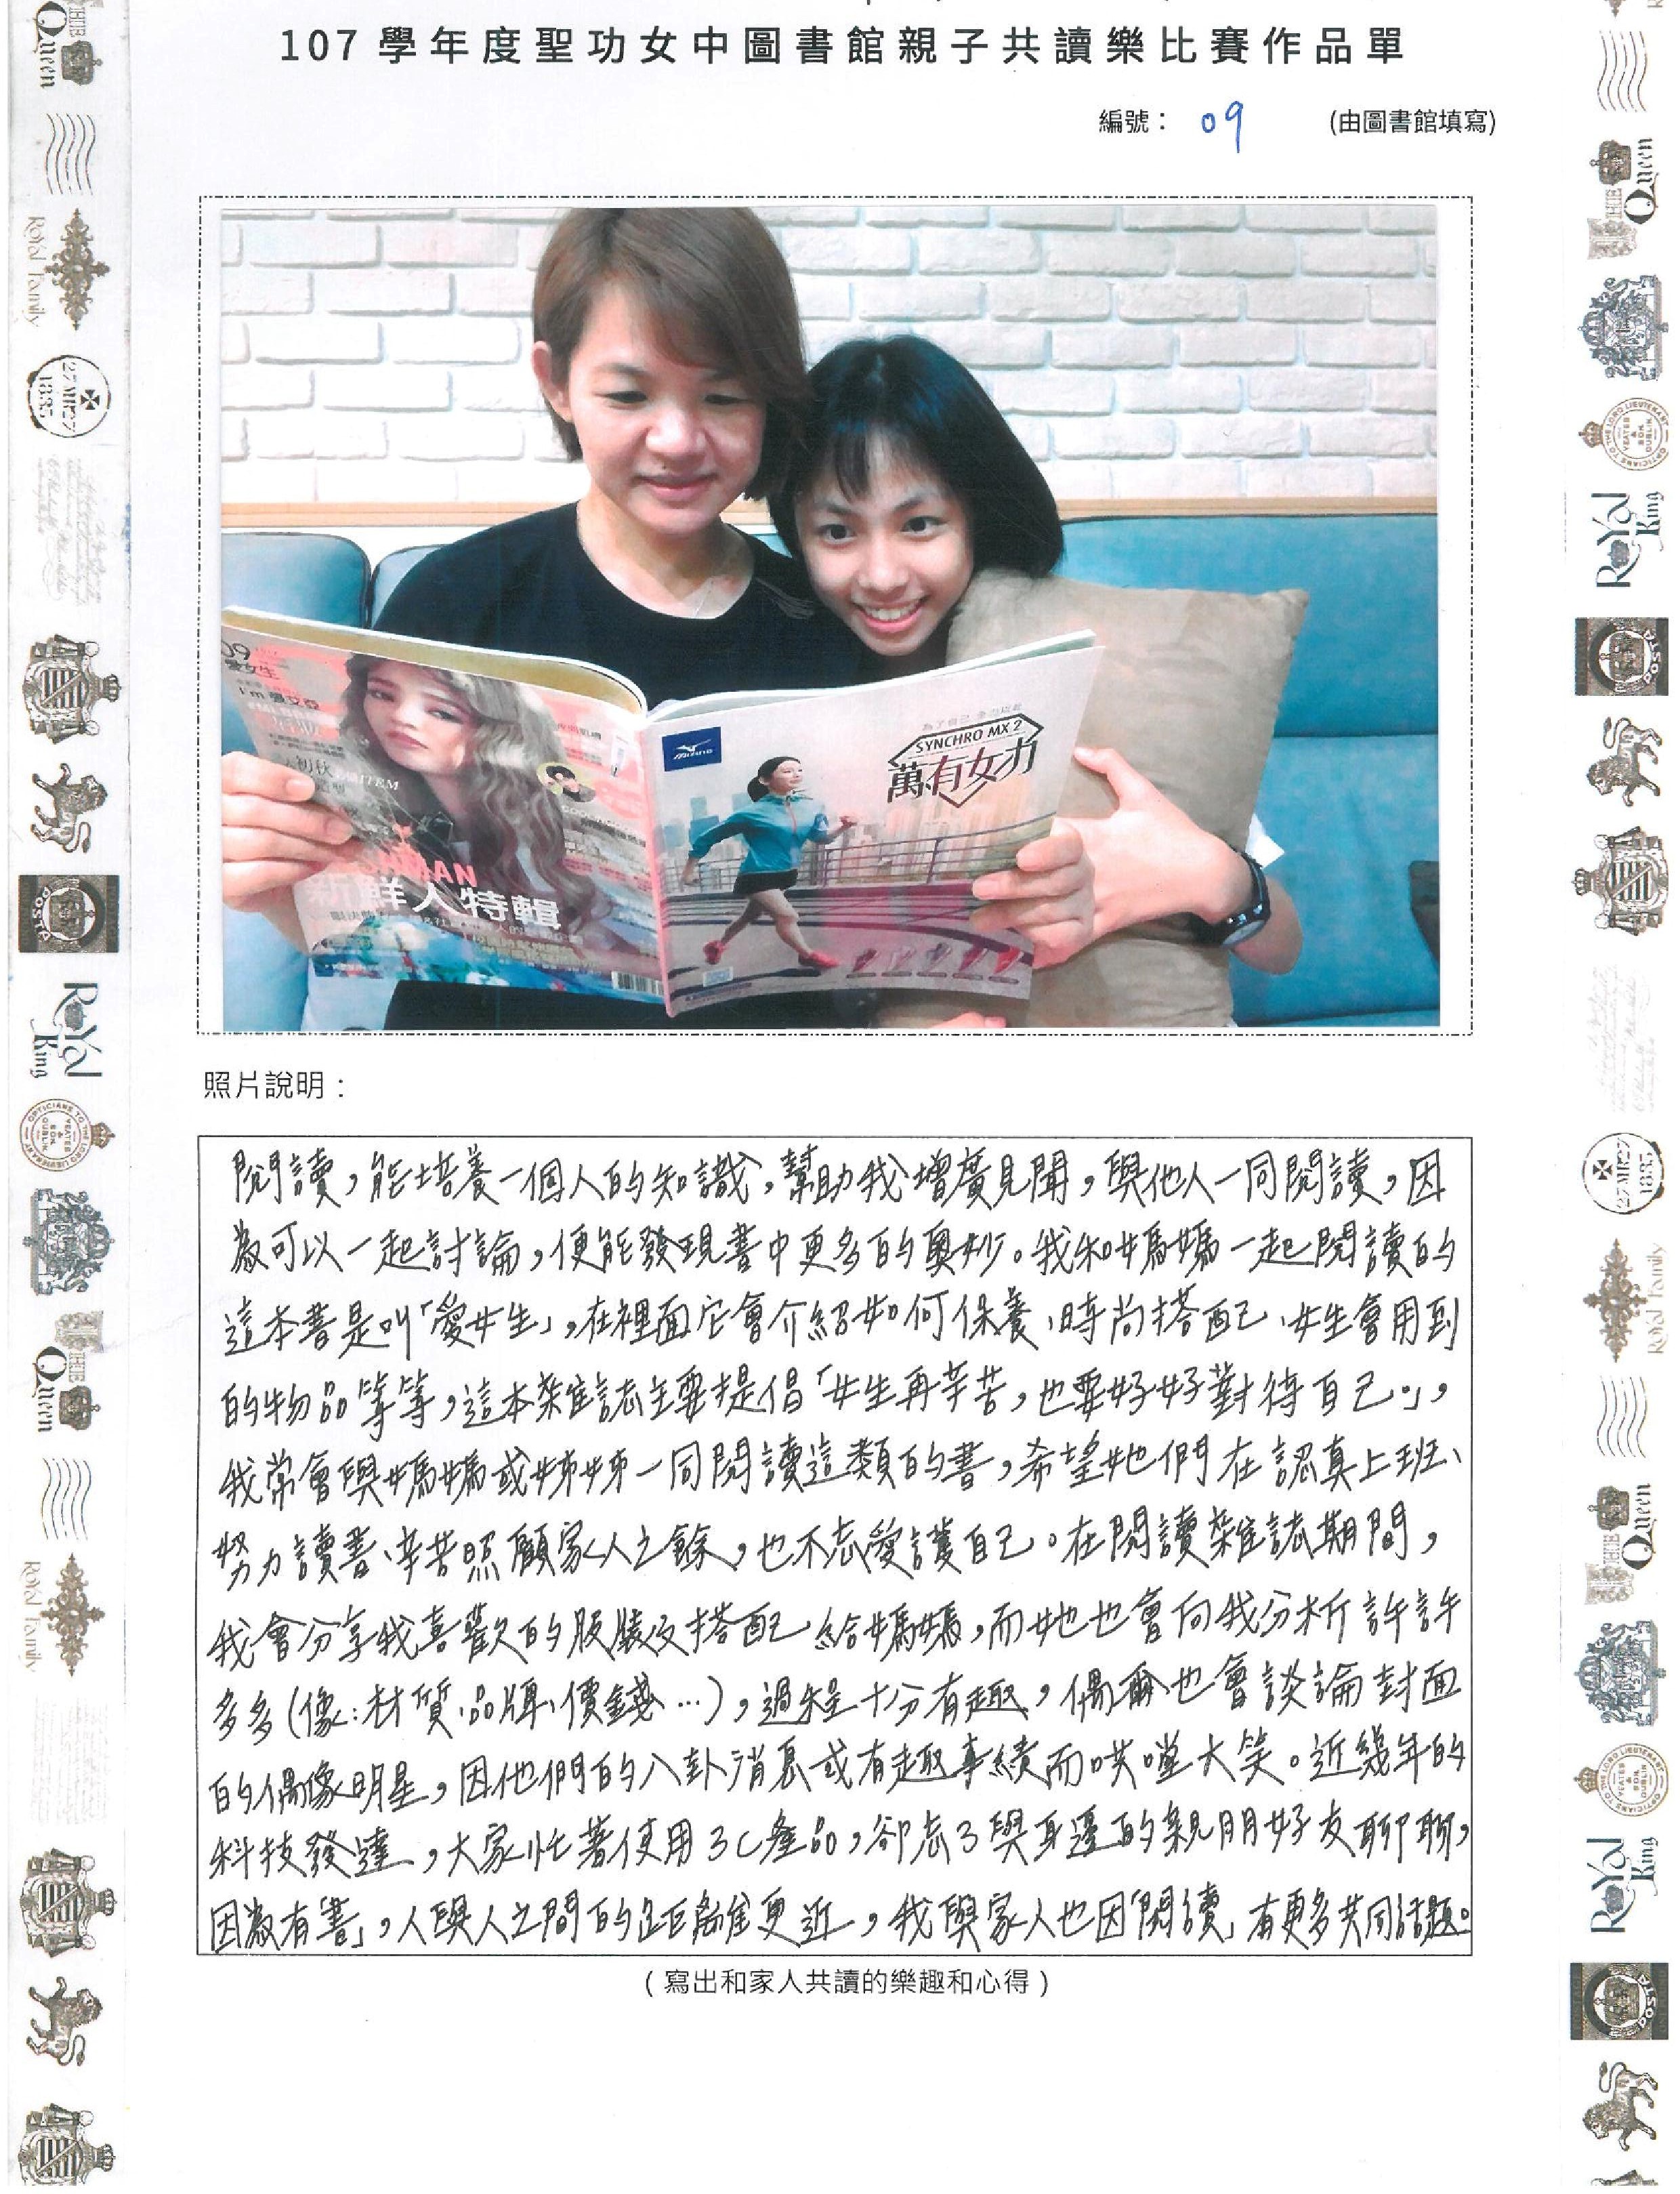 107學年度聖功女中圖書館親子共讀樂比賽作品單
編號： 09 (由圖書館填寫)
09
愛女生
初秋
新鮮人特輯
MIZUNO
SYNCHRO MX 2
萬有女力
照片說明：
閱讀，能培養一個人的知識，幫助我增廣見聞，與他人一同閱讀，因
為可以一起討論，便能發現書中更多的奧妙。我和媽媽一起閱讀的
這本書是叫「愛女生」，在裡面它會介紹如何保養、時尚搭配、女生會用到
的物品等等，這本雜誌主要提倡「女生再辛苦，也要好好對待自己。」，
我常會與媽媽或姊姊一同閱讀這類的書，希望她們在認真上班、
努力讀書、辛苦照顧家人之餘，也不忘愛護自己。在閱讀雜誌期間，
我會分享我喜歡的服裝及搭配給媽媽，而她也會向我分析許許
多多(像：材質、品牌、價錢…)，過程十分有趣，偶爾也會談論封面
的偶像明星，因他們的八卦消息或有趣事績而哄堂大笑。近幾年的
科技發達，大家忙著使用3C產品，卻忘了與身邊的親朋好友聊聊，
因為有「書」，人與人之間的距離更近，我與家人也因「閱讀」有更多共同話題。
(寫出和家人共讀的樂趣和心得)
THE Queen
Royal Family
27 MR 27
1885
POSTA
Royal King
OPTICIANS TO THE LORD LIEUTENANT
YEATES & SON DUBLIN
THE Queen
Royal Family
THE Queen
OPTICIANS TO THE LORD LIEUTENANT
YEATES & SON DUBLIN
Royal King
POSTA
27 MR 27
1885
Royal Family
THE Queen
OPTICIANS TO THE LORD LIEUTENANT
YEATES & SON DUBLIN
Royal King
POSTA